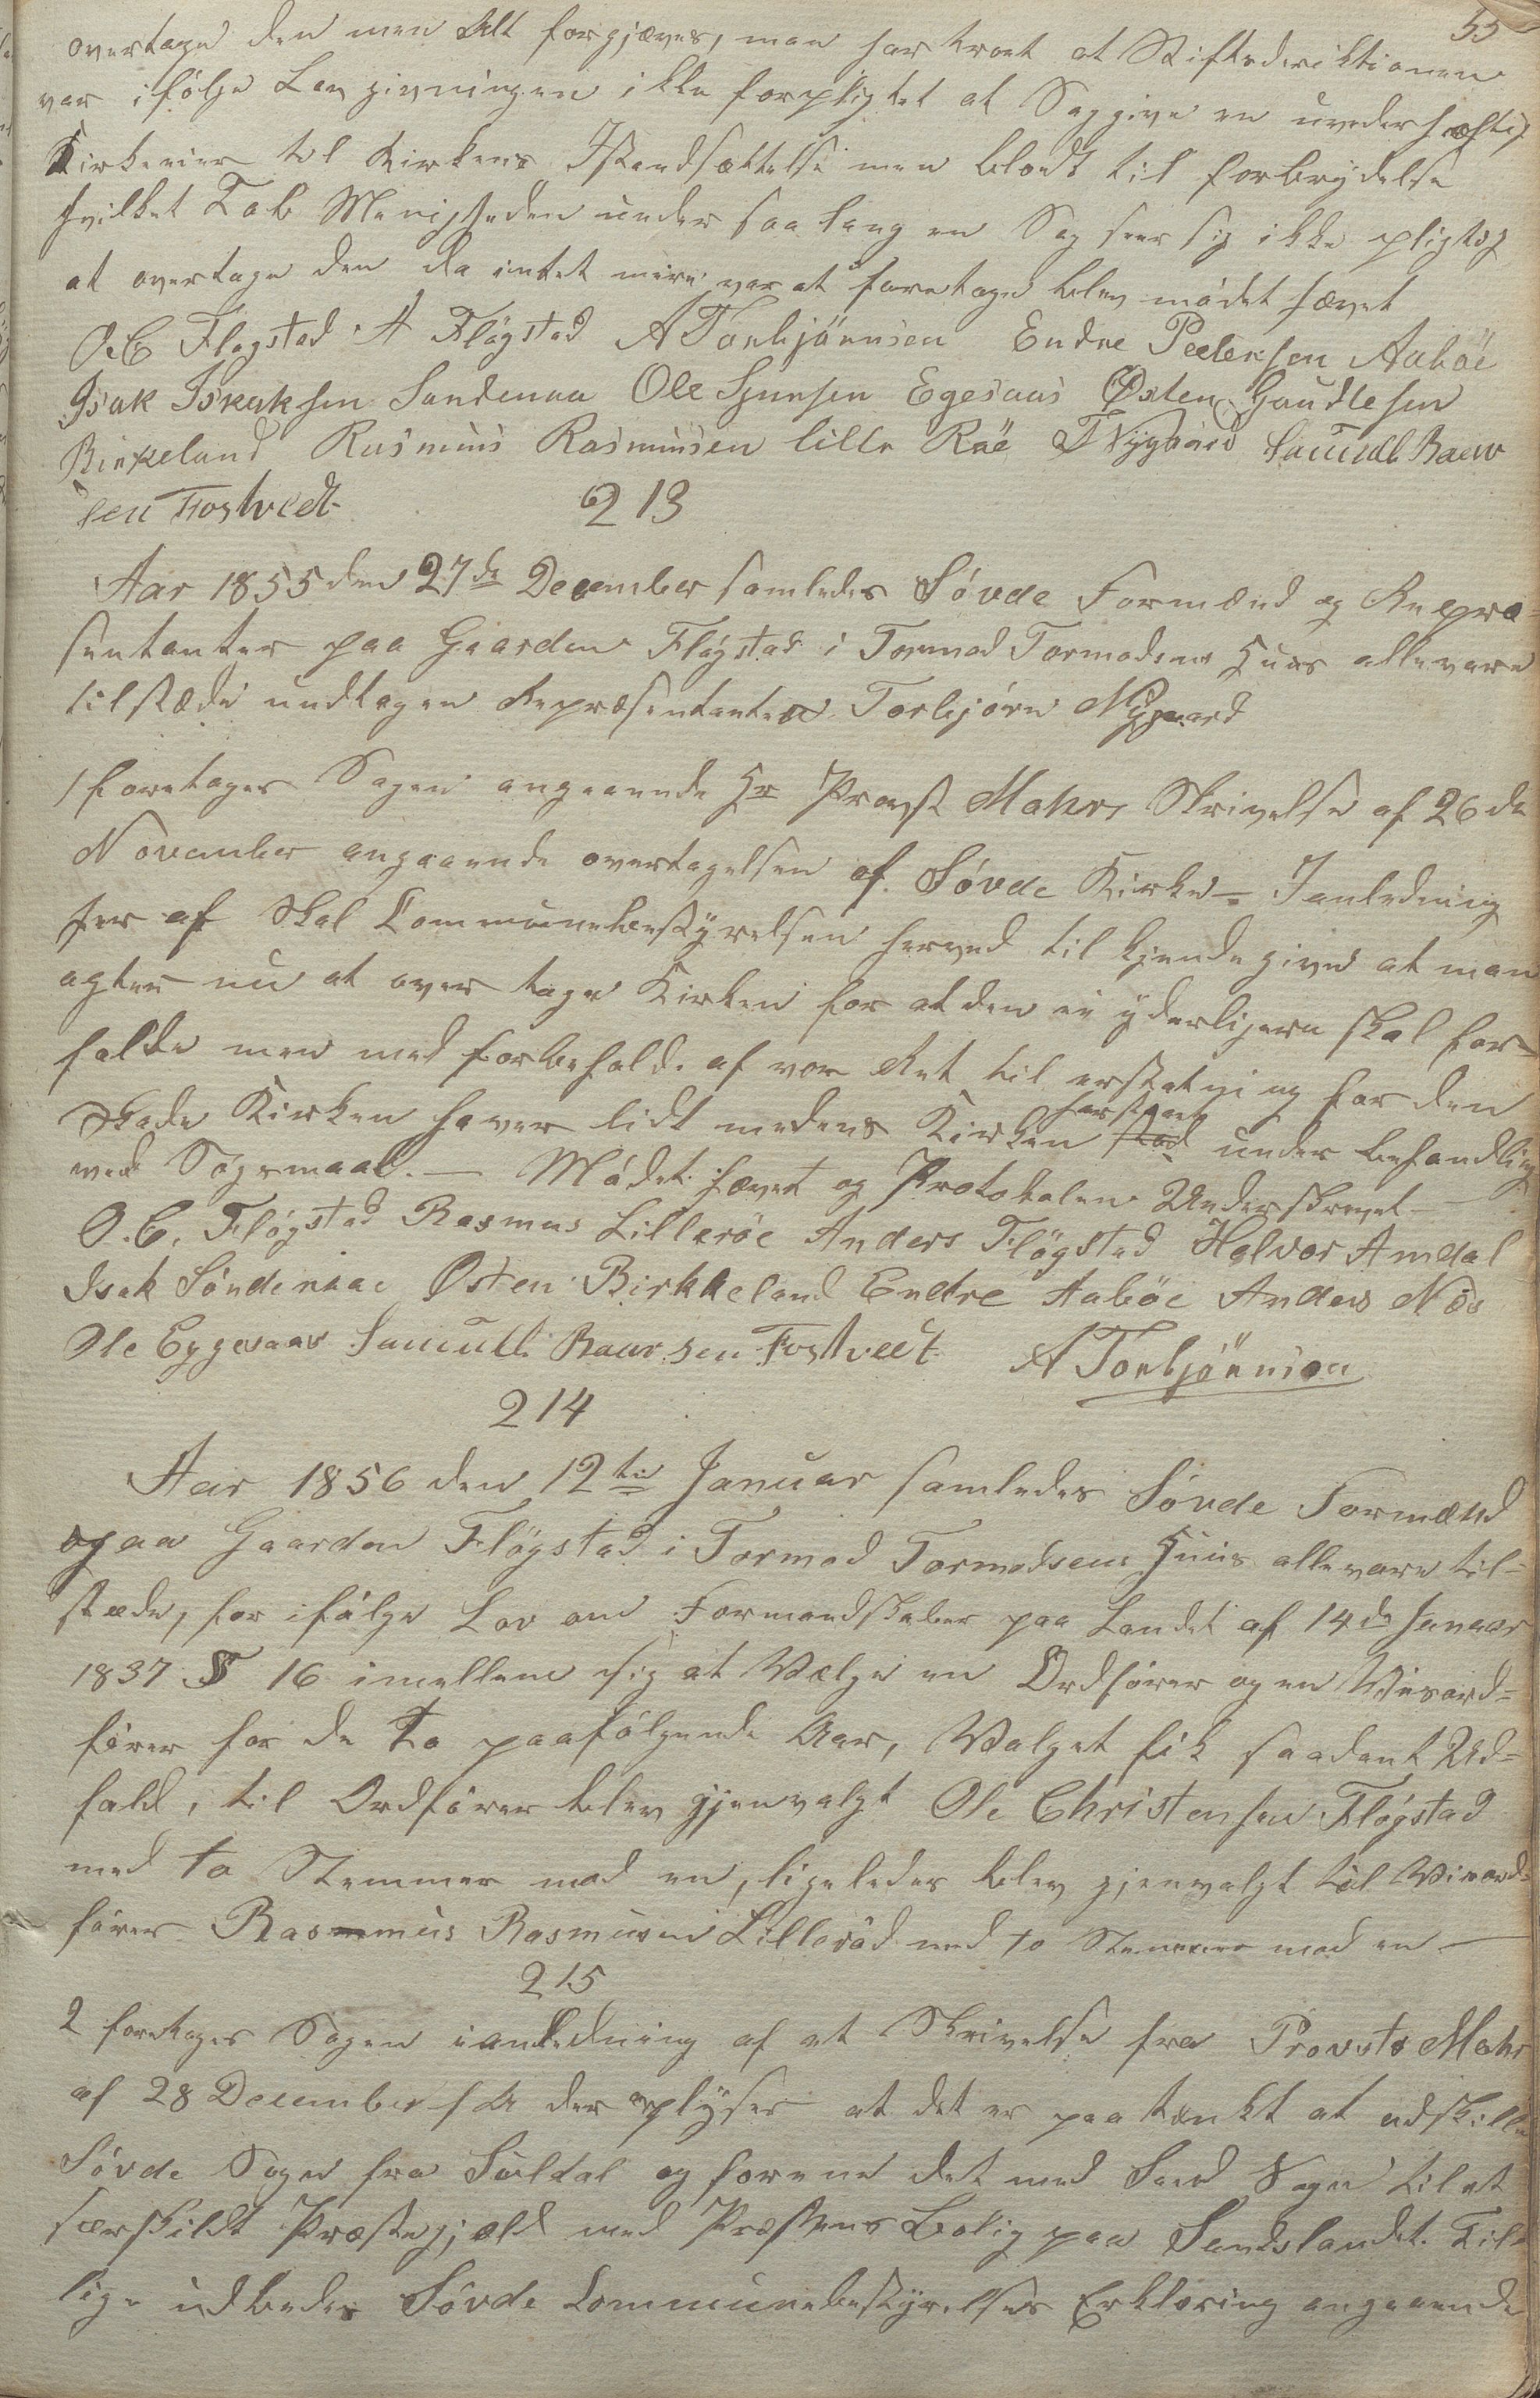 55
overtage den men Alt forgjæves, man har troet at Stiftsdirektionen
var ifølge Lovgivningen ikke forpligtet at Saggive en uvederhæftig
Kirkeeier til Kirkens Istandsættelse men blodt til forbrydelse
hvilket Tab Menigheden under saa lang en Sag seer sig ikke pligtig
at overtage den da intet mere var at foretage blev mødet hævet
O C Fløgstad A Fløgstad A Torbjörnsen Endre Peetersen Aaböe
Isak Isaksen Søndenaa Ole Sjursen Egesaas Østen Gaudtesen
Birkeland Rasmus Rasmusen lille Röe T Nygaard Samuell Baar
sen Fostvedt
213
Aar 1855 den 27de December samledes Søvde Formænd og Repræ-
sentanter paa Gaarden Fløgstad i Tormod Tormodsens Huus alle vare
tilstæde undtagen Repræsentanten Torbjørn Nygaard
1 foretages Sagen angaaende Hr Provst Mohrs Skrivelse af 26de
November angaaende overtagelsen af Søvde Kirke - Ianledning
her af skal Communebestyrelsen herved til kjendegive at man
agter nu at over tage Kirken for at den ei yderligere skal for-
falde men med forbehold af vor Ret til erstatning for den
Skade Kirken haver lidt medens Kirken stod har staaet under behandling
ved Søgsmaal. — Mødet hævet og Protokolen Underskrevet —
O. C. Fløgstad Rasmus Lilleröe Anders Flögstad Halvor Amdal
Isak Söndenaae Østen Birkkeland Endre Aaböe Anders Næs
Ole Eggesaas Samuell Baarsen Fostvedt A Torbjörnson
214
Aar 1856 den 12te Januar samledes Søvde Formænd
paa Gaarden Fløgstad i Tormod Tormodsens Huus alle vare til-
stæde, for ifølge Lov om Formandskaber paa Landet af 14de Januar
1837 § 16 imellem sig at Vælge en Ordfører og en Viseord-
fører for de to paafølgende Aar, Valget fik saadant Ud-
fald, til Ordfører blev gjenvalgt Ole Christensen Fløgstad
med to Stemmer mod en, ligeledes blev gjenvalgt til Viseord-
fører Rasmus Rasmusen Lilleröd med to Stemmer mod en —
215
2 foretages Sagen ianledning af et Skrivelse fra Provst Mohr
af 28 December f A der oplyser at det er paatænkt at udskille
Søvde Sogn fra Suldal og forene det med Sand Sogn til et
særskildt Præstegjæld med Præstens Bolig paa Sandslandet. Til-
lige udbedes Søvde Communebestyrelses Erklæring angaaende